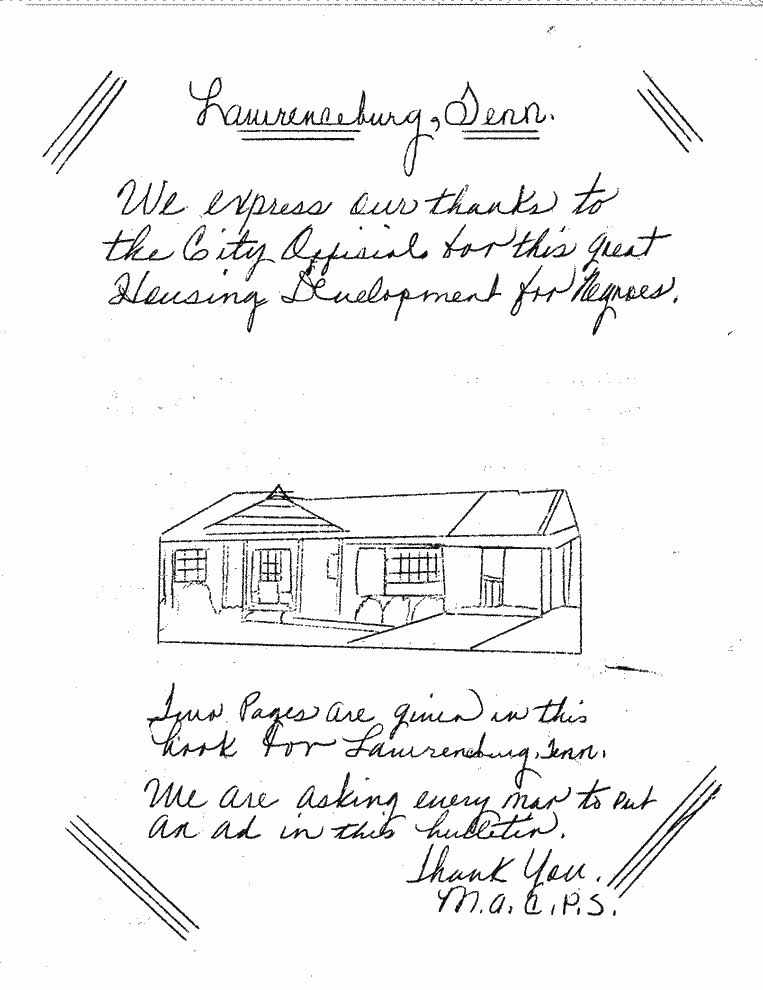 Lawrenceburg, Tenn.
We express our thanks to
the City Officials for this great
Housing Development for Negroes.
Two Pages are given in this
book for Lawrenceburg, Tenn.
We are asking every man to put
an ad in this bulletin.
Thank You.
M.A.C.P.S.